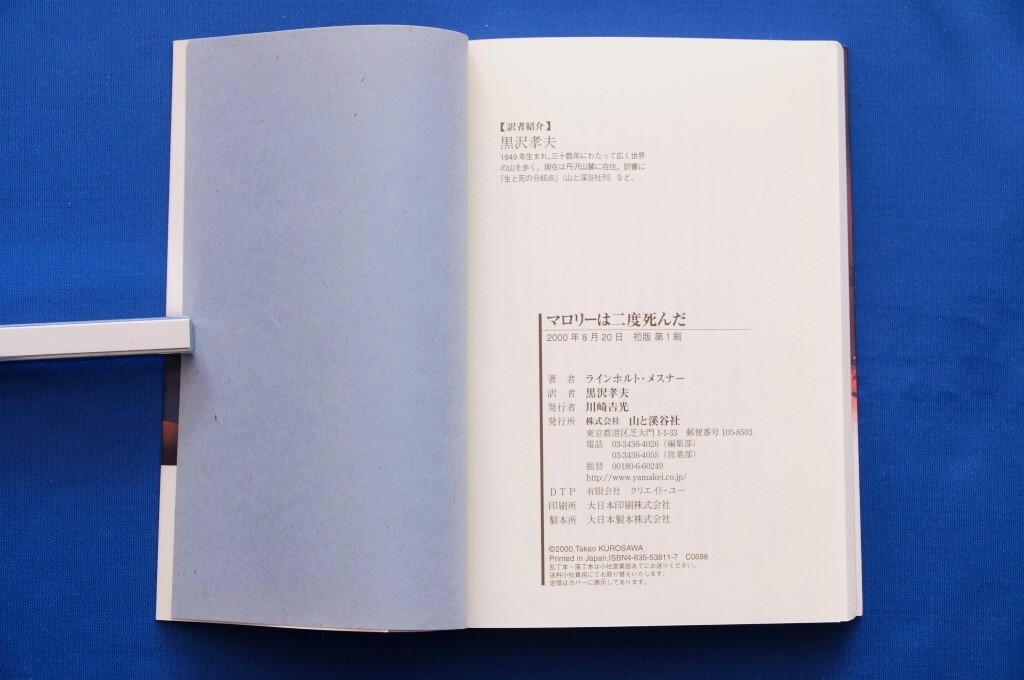 【訳者紹介】
黒沢孝夫
1949年生まれ。三十数年にわたって広く世界
の山を歩く。現在は丹沢山麓に在住。訳書に
『生と死の分岐点』(山と溪谷社刊)など。
マロリーは二度死んだ
2000年8月20日 初版第1刷
著 者 ラインホルト・メスナー
訳 者 黒沢孝夫
発行者 川崎吉光
発行所 株式会社 山と溪谷社
東京都港区芝大門1-1-33 郵便番号105-8503
電話 03-3436-4026(編集部)
03-3436-4055(営業部)
振替 00180-6-60249
http://www.yamakei.co.jp/
DTP 有限会社 クリエイト・ユー
印刷所 大日本印刷株式会社
製本所 大日本製本株式会社
©2000,Takao KUROSAWA
Printed in Japan.ISBN4-635-53811-7 C0098
乱丁本・落丁本は小社営業部あてにお送りください。
送料小社負担にてお取り替えいたします。
定価はカバーに表示してあります。